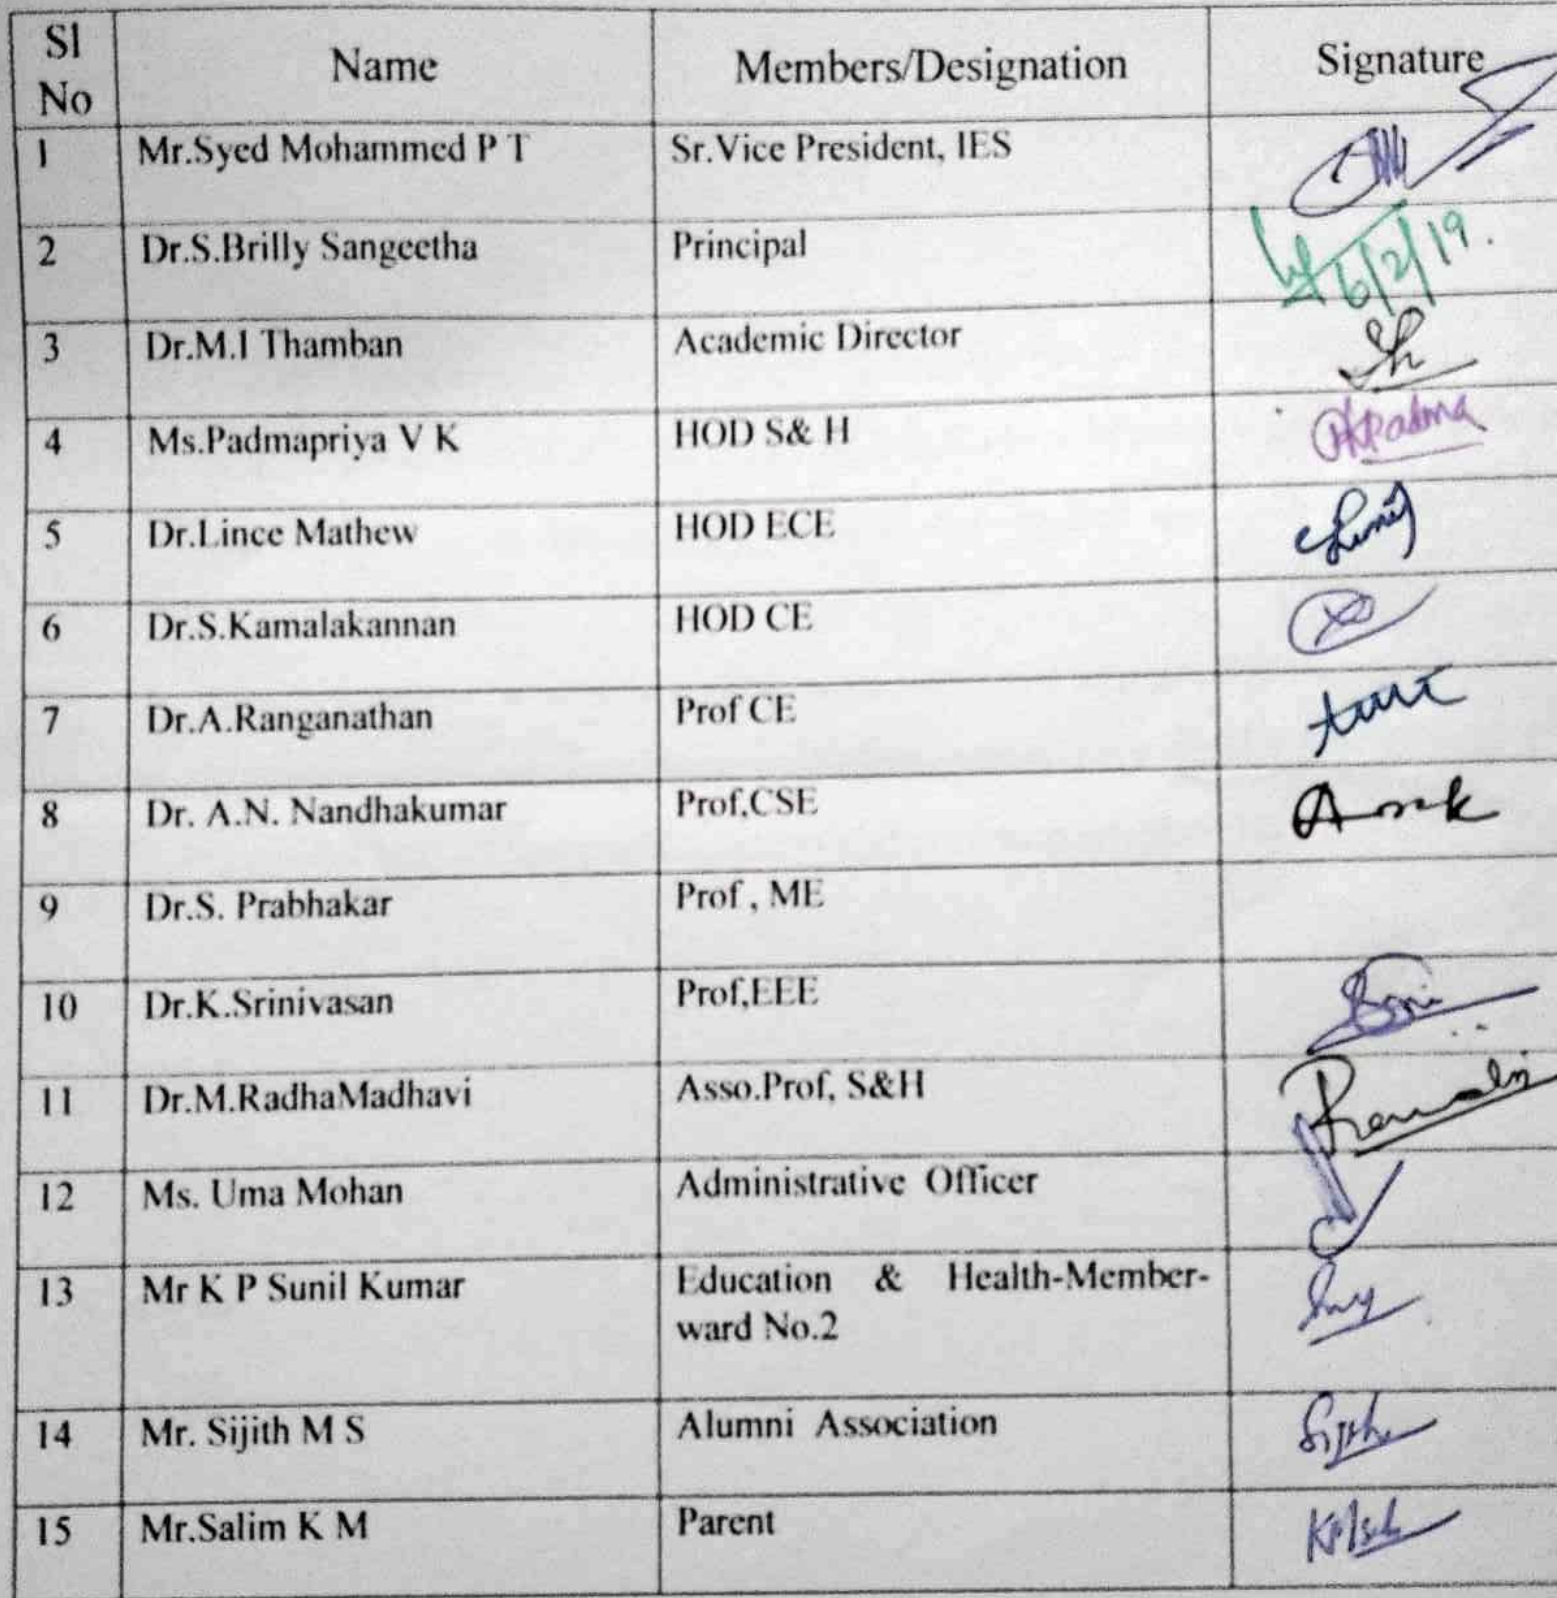 Sl No Name Members/Designation Signature
1 Mr.Syed Mohammed P T Sr.Vice President, IES
2 Dr.S.Brilly Sangeetha Principal 6/2/19.
3 Dr.M.I Thamban Academic Director
4 Ms.Padmapriya V K HOD S& H
5 Dr.Lince Mathew HOD ECE
6 Dr.S.Kamalakannan HOD CE
7 Dr.A.Ranganathan Prof CE
8 Dr. A.N. Nandhakumar Prof,CSE
9 Dr.S. Prabhakar Prof , ME
10 Dr.K.Srinivasan Prof,EEE
11 Dr.M.RadhaMadhavi Asso.Prof, S&H
12 Ms. Uma Mohan Administrative Officer
13 Mr K P Sunil Kumar Education & Health-Member-
ward No.2
14 Mr. Sijith M S Alumni Association
15 Mr.Salim K M Parent